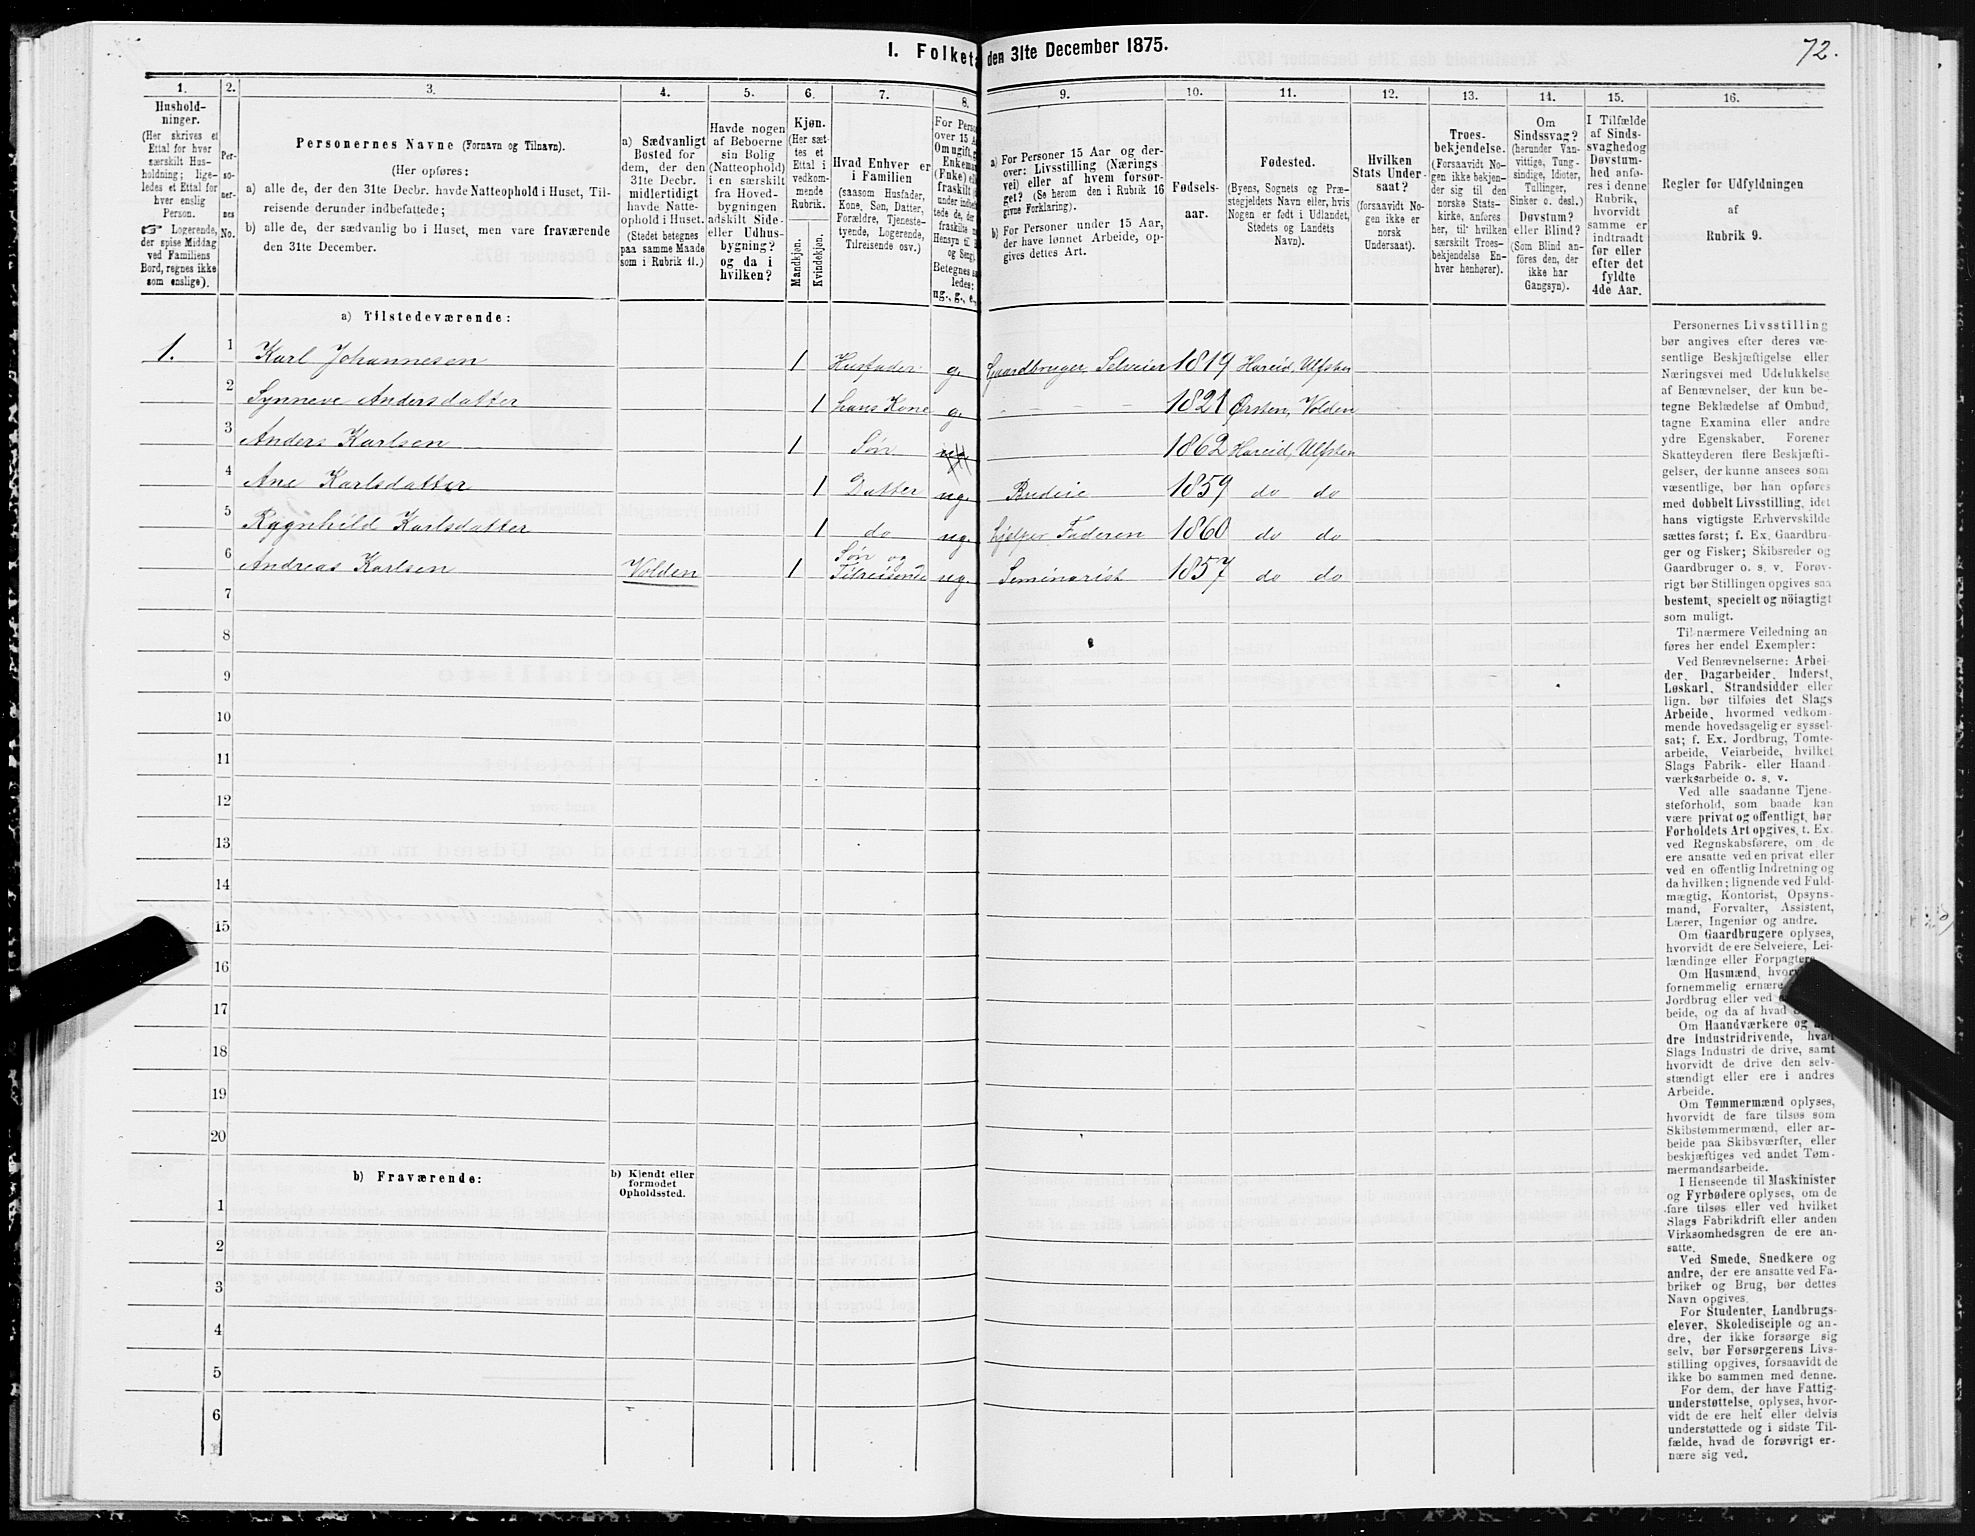 I. Folketæ
den 31te December 1875.
72.
1.
2.
3.
4.
5.
6.
7.
8.
9.
10.
11.
12.
13.
14.
15.
16.
Hushold-
ninger.
(Her skrives et
Ettal for hver
særskilt Hus-
holdning; lige-
ledes et Ettal for
hver enslig
Person.
☞ Logerende,
der spise Middag
ved Familiens
Bord, regnes ikke
som enslige).
Per-
so-
ner-
nes
No.
Personernes Navne (Fornavn og Tilnavn).
(Her opføres:
a) alle de, der den 31te Decbr. havde Natteophold i Huset, Til-
reisende derunder indbefattede;
b) alle de, der sædvanlig bo i Huset, men vare fraværende
den 31te December.
a) Sædvanligt
Bosted for
dem, der den
31te Decbr.
midlertidigt
havde Natte-
ophold i Huset.
(Stedet betegnes
paa samme Maade
som i Rubrik 11.)
Havde nogen
af Beboerne
sin Bolig
(Natteophold)
i en særskilt
fra Hoved-
bygningen
adskilt Side-
eller Udhus-
bygning?
og da i
hvilken?
Kjøn.
(Her sæt-
tes et
Ettal i
vedkom-
mende
Rubrik.
Mandkjøn.
Kvindekjøn.
Hvad Enhver er
i Familien
(saasom Husfader,
Kone, Søn, Datter,
Forældre, Tjeneste-
tyende, Logerende,
Tilreisende osv.)
For Perso
over 15 A
Om ugift, g
Enkeman
(Enke) el
fraskilt
under indbe
tede de, d
fraskilte
Hensyn til B
og Seng)
Betegnes s
ledes:
ug., g., e.,
a) For Personer 15 Aar og der-
over: Livsstilling (Nærings
vei) eller af hvem forsør-
get? (Se herom den i Rubrik 16
givne Forklaring).
b) For Personer under 15 Aar,
der have lønnet Arbeide, op-
gives dettes Art.
Fødsels-
aar.
Fødested.
(Byens, Sognets og Præ-
stegjeldets Navn eller, hvis
Nogen er født i Udlandet,
Stedets og Landets
Navn).
Hvilken
Stats Under-
saat?
(forsaavidt No-
gen ikke er
norsk
Undersaat).
Troes-
bekjendelse.
(Forsaavidt No-
gen ikke bekjen-
der sig til den
norske Stats-
kirke, anføres
her, til hvilken
særskilt Troes-
bekjendelse En-
hver henhører).
Om
Sindssvag?
(herunder Van-
vittige, Tung-
sindige, Idioter,
Tullinger,
Sinker o. desl.)
Døvstum?
eller Blind?
(Som Blind an-
føres den, der
ikke har
Gangsyn).
I Tilfælde
af Sinds-
svaghedog
Døvstum-
hed anfø-
res i denne
Rubrik,
hvorvidt
samme er
indtraadt
før eller
efter det
fyldte
4de Aar.
Regler for Udfyldningen
af
Rubrik 9.
a) Tilstedeværende:
1. 1 Karl Johannesen 1 Husfader g. Gaardbruger Selveier 1819 Hareid, Ulfsten
2 Synneve Andersdatter 1 hans Kone g. — — — — 1821 Ørsten, Volden
3 Anders Karlsen 1 Søn 1862 Hareid, Ulfsten
4 Ane Karlsdatter 1 Datter ug. Budeie 1859 do do
5 Ragnhild Karlsdatter 1 do ug. hjelper Faderen 1860 do do
6 Andreas Karlsen Volden 1 Søn og Tilreisende ug. Seminarist 1857 do do
7
8
9
10
11
12
13
14
15
16
17
18
19
20
b) Fraværende:
b) Kjendt eller
formodet
Opholdssted.
1
2
3
4
5
6
Personernes Livsstilling
bør angives efter deres væ-
sentlige Beskjæftigelse eller
Næringsvei med Udelukkelse
af Benævnelser, der kun be-
tegne Beklædelse af Ombud,
tagne Examina eller andre
ydre Egenskaber. Forener
Skatteyderen flere Beskjæfti-
gelser, der kunne ansees som
væsentlige, bør han opføres
med dobbelt Livsstilling, idet
hans vigtigste Erhvervskilde
sættes først; f. Ex. Gaardbru-
ger og Fisker; Skibsreder og
Gaardbruger o. s. v. Forøv-
rigt bør Stillingen opgives saa
bestemt, specielt og nöiagtigt
som muligt.
Til nærmere Veiledning an
føres her endel Exempler:
Ved Benævnelserne: Arbei-
der, Dagarbeider, Inderst,
Løskarl, Strandsidder eller
lign. bør tilføies det Slags
Arbeide, hvormed vedkom-
mende hovedsagelig er syssel-
sat; f. Ex. Jordbrug, Tomte-
arbeide, Veiarbeide, hvilket
Slags Fabrik- eller Haand
værksarbeide o. s. v.
Ved alle saadanne Tjene-
steforhold, som baade kan
være privat og offentligt, bør
Forholdets Art opgives, t. Ex.
ved Regnskabsførere, om de
ere ansatte ved en privat eller
ved en offentlig Indretning og
da hvilken; lignende ved Fuld-
mægtig, Kontorist, Opsyns-
mand, Forvalter, Assistent,
Lærer, Ingeniør og andre.
Om Gaardbrugere oplyses,
hvorvidt de ere Selveiere, Lei-
lændinge eller Forpagtere.
Om Husmænd, hvor
fornemmelig ernære
Jordbrug eller ved
beide, og da af hvad
Om Haandværkere og
dre Industridrivende, hvad
Slags Industri de drive, samt
hvorvidt de drive den selv-
stændigt eller ere i andres
Arbeide.
Om Tømmermænd oplyses,
hvorvidt de fare tilsøs som
Skibstømmermænd, eller ar-
beide paa Skibsværfter, eller
beskjæftiges ved andet Tøm-
mermandsarbeide.
I Henseende til Maskinister
og Fyrbødere oplyses, om de
fare tilsøs eller ved hvilket
Slags Fabrikdrift eller anden
Virksomhedsgren de ere an-
satte.
Ved Smede, Snedkere og
andre, der ere ansatte ved Fa-
briker og Brug, bør dettes
Navn opgives.
For Studenter, Landbrugs-
elever, Skoledisciple og an-
dre, der ikke forsørge sig
selv, bør Forsørgerens Livs-
stilling opgives, forsaavidt de
ikke bo sammen med denne.
For dem, der have Fattig-
understøttelse, oplyses, hvor-
vidt de ere helt eller delvis
understøttede og i sidste Til-
fælde, hvad de forøvrigt er-
nære sig ved.